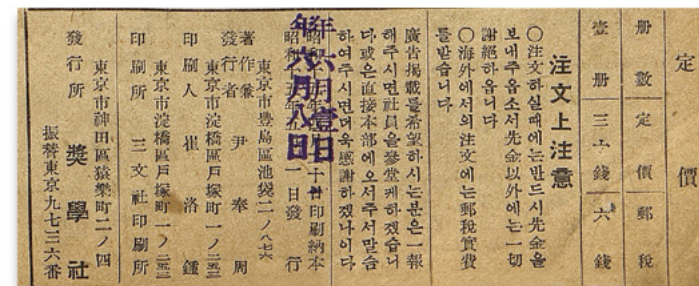 定價
册數 定價 郵稅
壹册 三十錢 六錢
注文上注意
〇注文하실때에는반드시先金을
보내주옵소서先金以外에는一切
謝絕하옵니다
〇海外에서의注文에는郵稅實費
를받습니다
廣告揭載를希望하시는분은一報
해주시면社員을參堂케하겠습니
다或은直接本部에오서주서말슴
하여주시면더욱感謝하겠나이다
年六月壹日
昭和十日印刷納本
年六月八日
昭和十五年一日發行
東京市豊島區池袋二ノ八七六
著作兼發行者 尹奉周
東京市淀橋區戶塚町一ノ
印刷人 崔洛鍾
東京市淀橋區戶塚町一ノ
印刷所 三文社印刷所
東京市神田區猿樂町二ノ四
發行所 奬學社
振替東京九七三六番